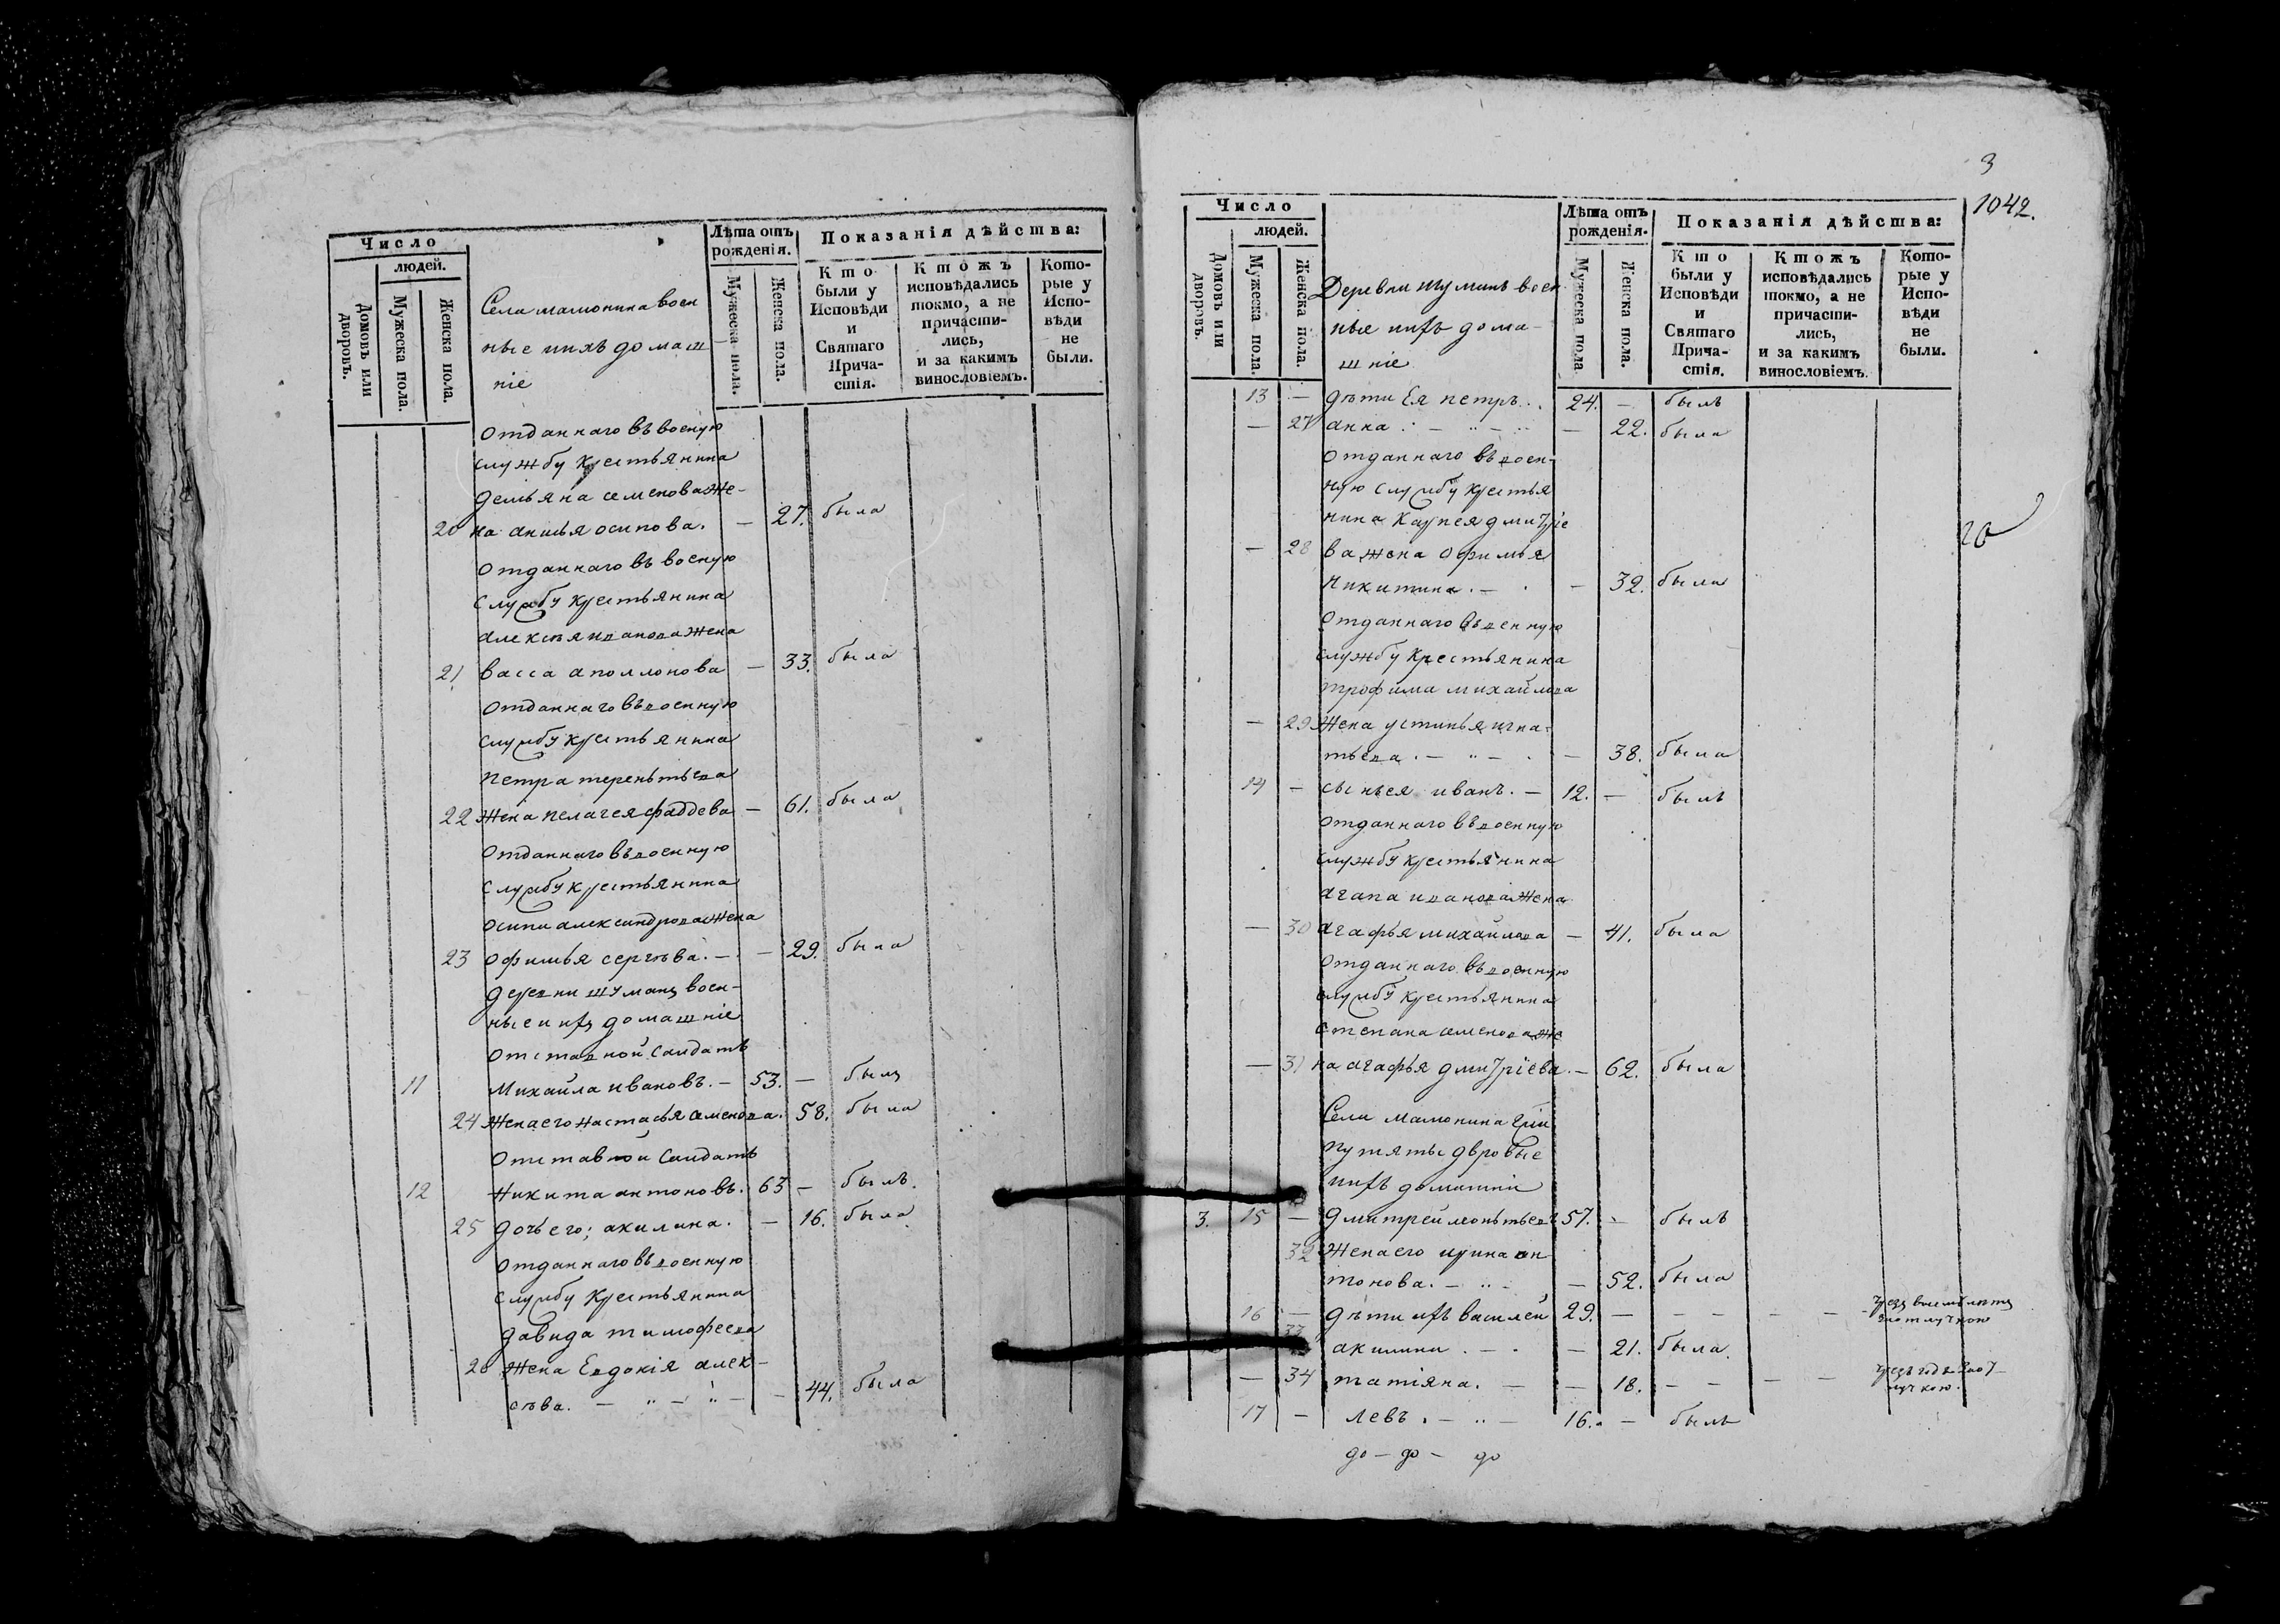 Число
людей.
Домовъ или дворовъ.
Мужеска пола.
Женска пола.
Села мамонина воен
ные ихъ домаш
ніе
Лѣта отъ рожденія.
Мужеска пола.
Женска пола.
Показанія дѣйства:
Кто были у Исповѣди и Святаго Причастія.
Ктожъ исповѣдались токмо, а не причастились, и за какимъ винословіемъ.
Которые у Исповѣди не были.
отданнаго въ военую
службу крестьянина
демьяна семенова же-
20 на анисья осипова. — 27. была
отданнаго въ военую
службу крестьянина
алексѣя иванова жена
21 васса аполлонова — 33. была
отданнаго въ военную
службу крестьянина
петра терентьева
22 жена пелагея фаддева — 61. была
отданнаго въ военную
службу крестьянина
осипа александрова жена
23 офимья сергѣва. — — 29. была
деревни шуманъ воен-
ные и ихъ домашніе
отставной салдатъ
11 Михайла ивановъ. — 53. — былъ
24 жена его настасья семенова. 58. была
отставной салдатъ
12 никита антоновъ. 63 — былъ.
25 дочь его; акилина. — 16. была
отданнаго въ военную
службу крестьянина
давида тимофеева
26 жена Евдокія алек-
сѣва. — " — " — — 44. была
3
1042.
Число
людей.
Домовъ или дворовъ.
Мужеска пола.
Женска пола.
Деревни шуминъ воен
ные ихъ дома-
шніе
Лѣта отъ рожденія.
Мужеска пола
Женска пола.
Показанія дѣйства:
Кто были у Исповѣди и Святаго Причастія.
Ктожъ исповѣдались токмо, а не причастились, и за какимъ винословіемъ.
Которые у Исповѣди не были.
13 — дѣти Ея петръ. . 24. — былъ
— 27 анна . — " — " — 22. была
отданнаго въ воен-
ную службу крестья
нина карпея дмитріе
— 28 ва жена офимья
никитина. — . — 32. была
отданнаго въ военную
службу крестьянина
трофима михайлова
— 29 жена устинья игна-
тьева. — " — . — 38. была
14 — сынъ ея иванъ. — 12. — былъ
отданнаго въ военную
службу крестьянина
агапа иванова жена
— 30 агафья михайлова — 41. была
отданнаго въ военную
службу крестьянина
степана семенова же
— 31 на агафья дмитріева. — 62. была
Села мамонина
путяты дворовые
ихъ домашніи
3. 15 — дмитрей леонтьевъ 57. — былъ
32 жена его ирина ан
тонова. — " — — 52. была
16 — дѣти ихъ василей 29. — — — — —
за отлучкою
33 акилина . — . — 21. была.
— 34 татіяна. — — 18. — — — —
лучкою.
17 — левъ. — " — 16. — былъ
до — до — до